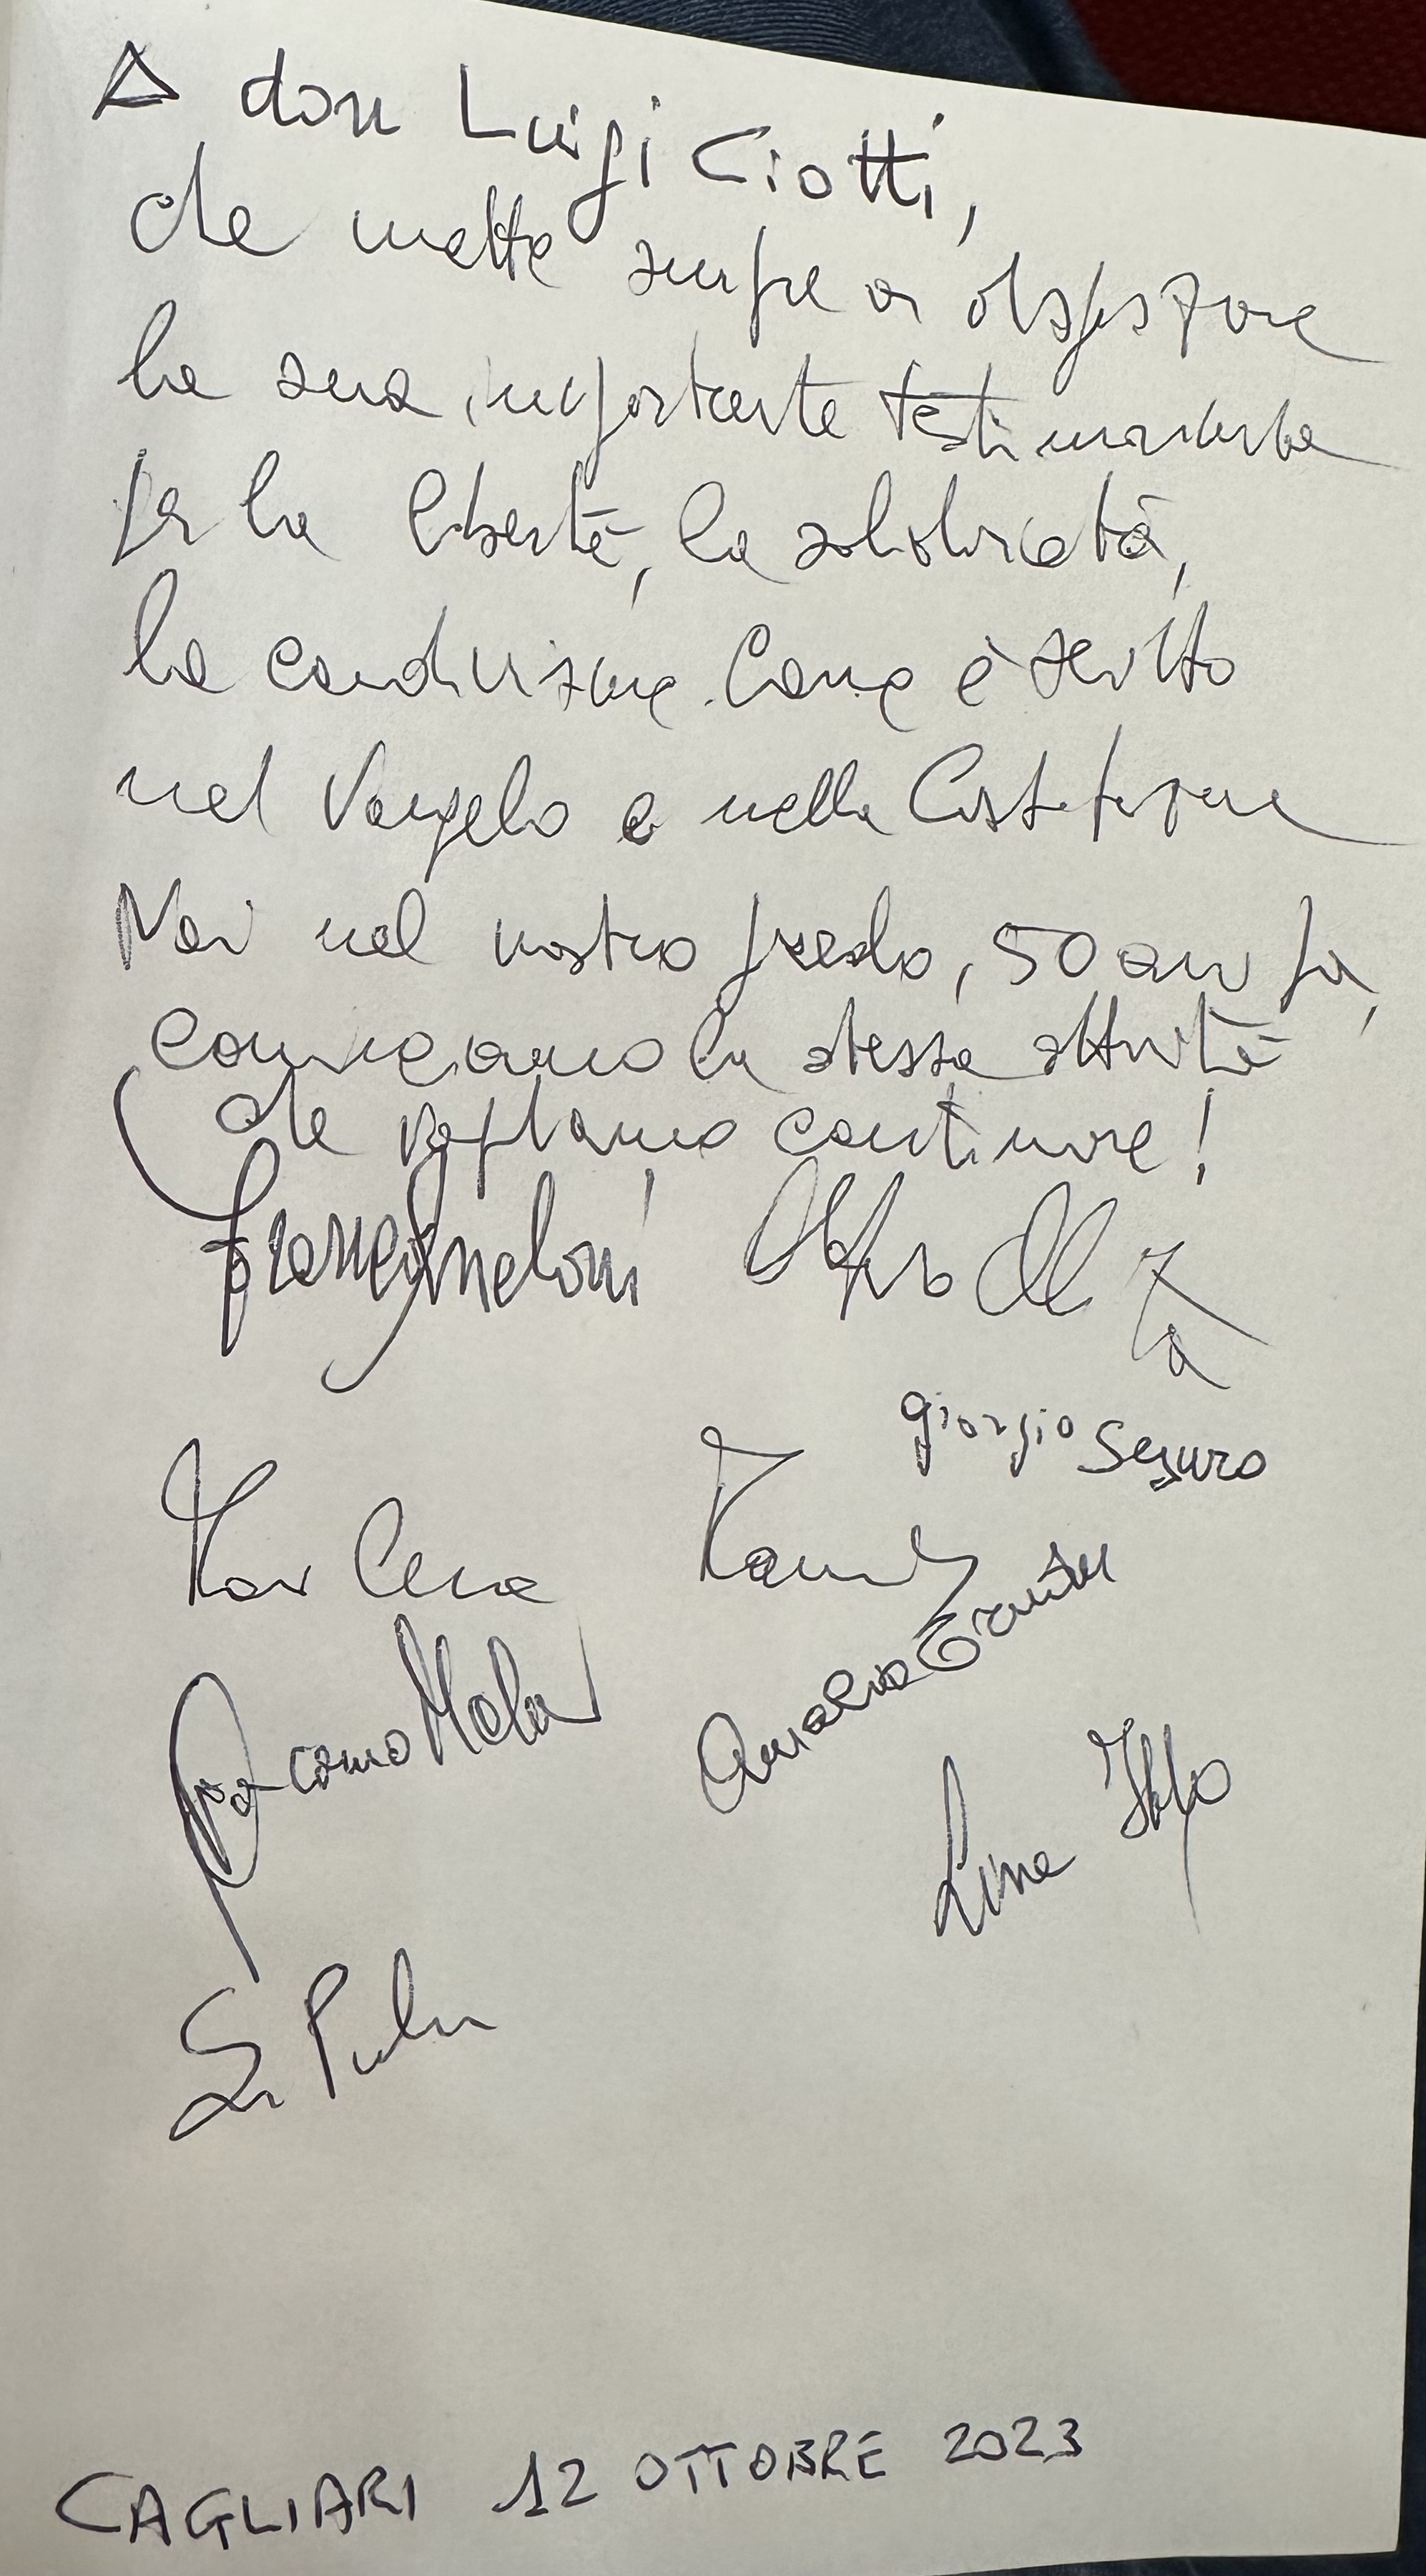 A don Luigi Ciotti,
che mette sempre a disposizione
la sua importante testimonianza
per la libertà, la solidarietà,
la condivisione. Come è scritto
nel Vangelo e nella Costituzione
Noi nel nostro piccolo, 50 anni fa,
cominciammo la stessa attività
che vogliamo continuare!
Franco Meloni
giorgio Seguro
Marlena
Giacomo Meloni
Amalia
Lina
CAGLIARI 12 OTTOBRE 2023